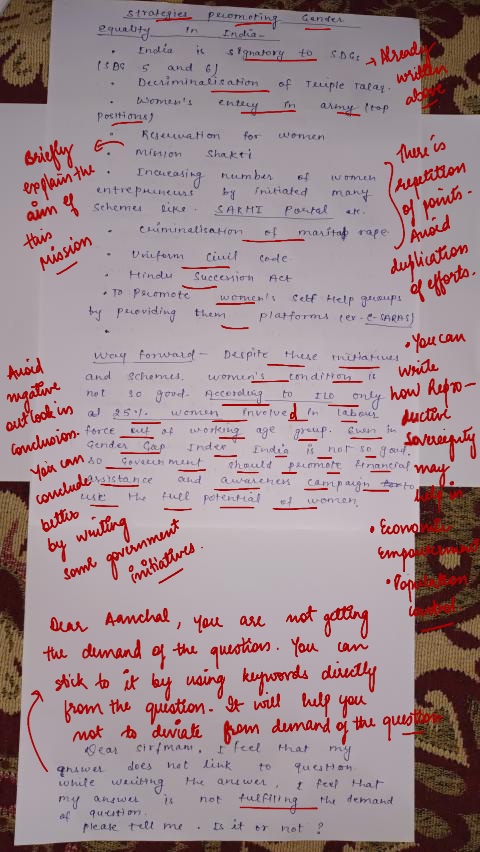 Strategies promoting Gender
equality in India-
• India is signatory to SDGs
(SDG 5 and 6)
→ Already
written
above
• Decriminalisation of Triple Talaq.
• Women's entry in army (top
positions)
• Reservation for women
• Mission Shakti
Briefly
explain the
aim of
this
mission
• Increasing number of women
entrepreneurs by initiated many
schemes like. SAKHI Portal etc.
• Criminalisation of marital rape
There is
repetition
of points.
Avoid
duplication
of efforts.
• Uniform Civil Code.
• Hindu Succession Act
• To Promote women's Self Help groups
by providing them platforms (ex- E-SARAS)
•
Way forward - Despite these initiatives
and schemes, women's condition is
not so good. According to ILO only
at 25%. women involved in labour
force out of working age group. Even in
Gender Gap Index India is not so good.
so Government should promote financial
assistance and awareness campaign to
use the full potential of women.
Avoid
negative
outlook in
conclusion.
You can
conclude
better
by writing
some government
initiatives.
• You can
write
how Repro-
ductive
Sovereignty
may
help in
• Economic
Empowerment
• Population
control
Dear Aanchal, you are not getting
the demand of the question. You can
stick to it by using keywords directly
from the question. It will help you
not to deviate from demand of the question
Dear Sir/mam, I feel that my
answer does not link to question.
while writing the answer, I feel that
my answer is not fulfiling the demand
of question.
please tell me. Is it or not?